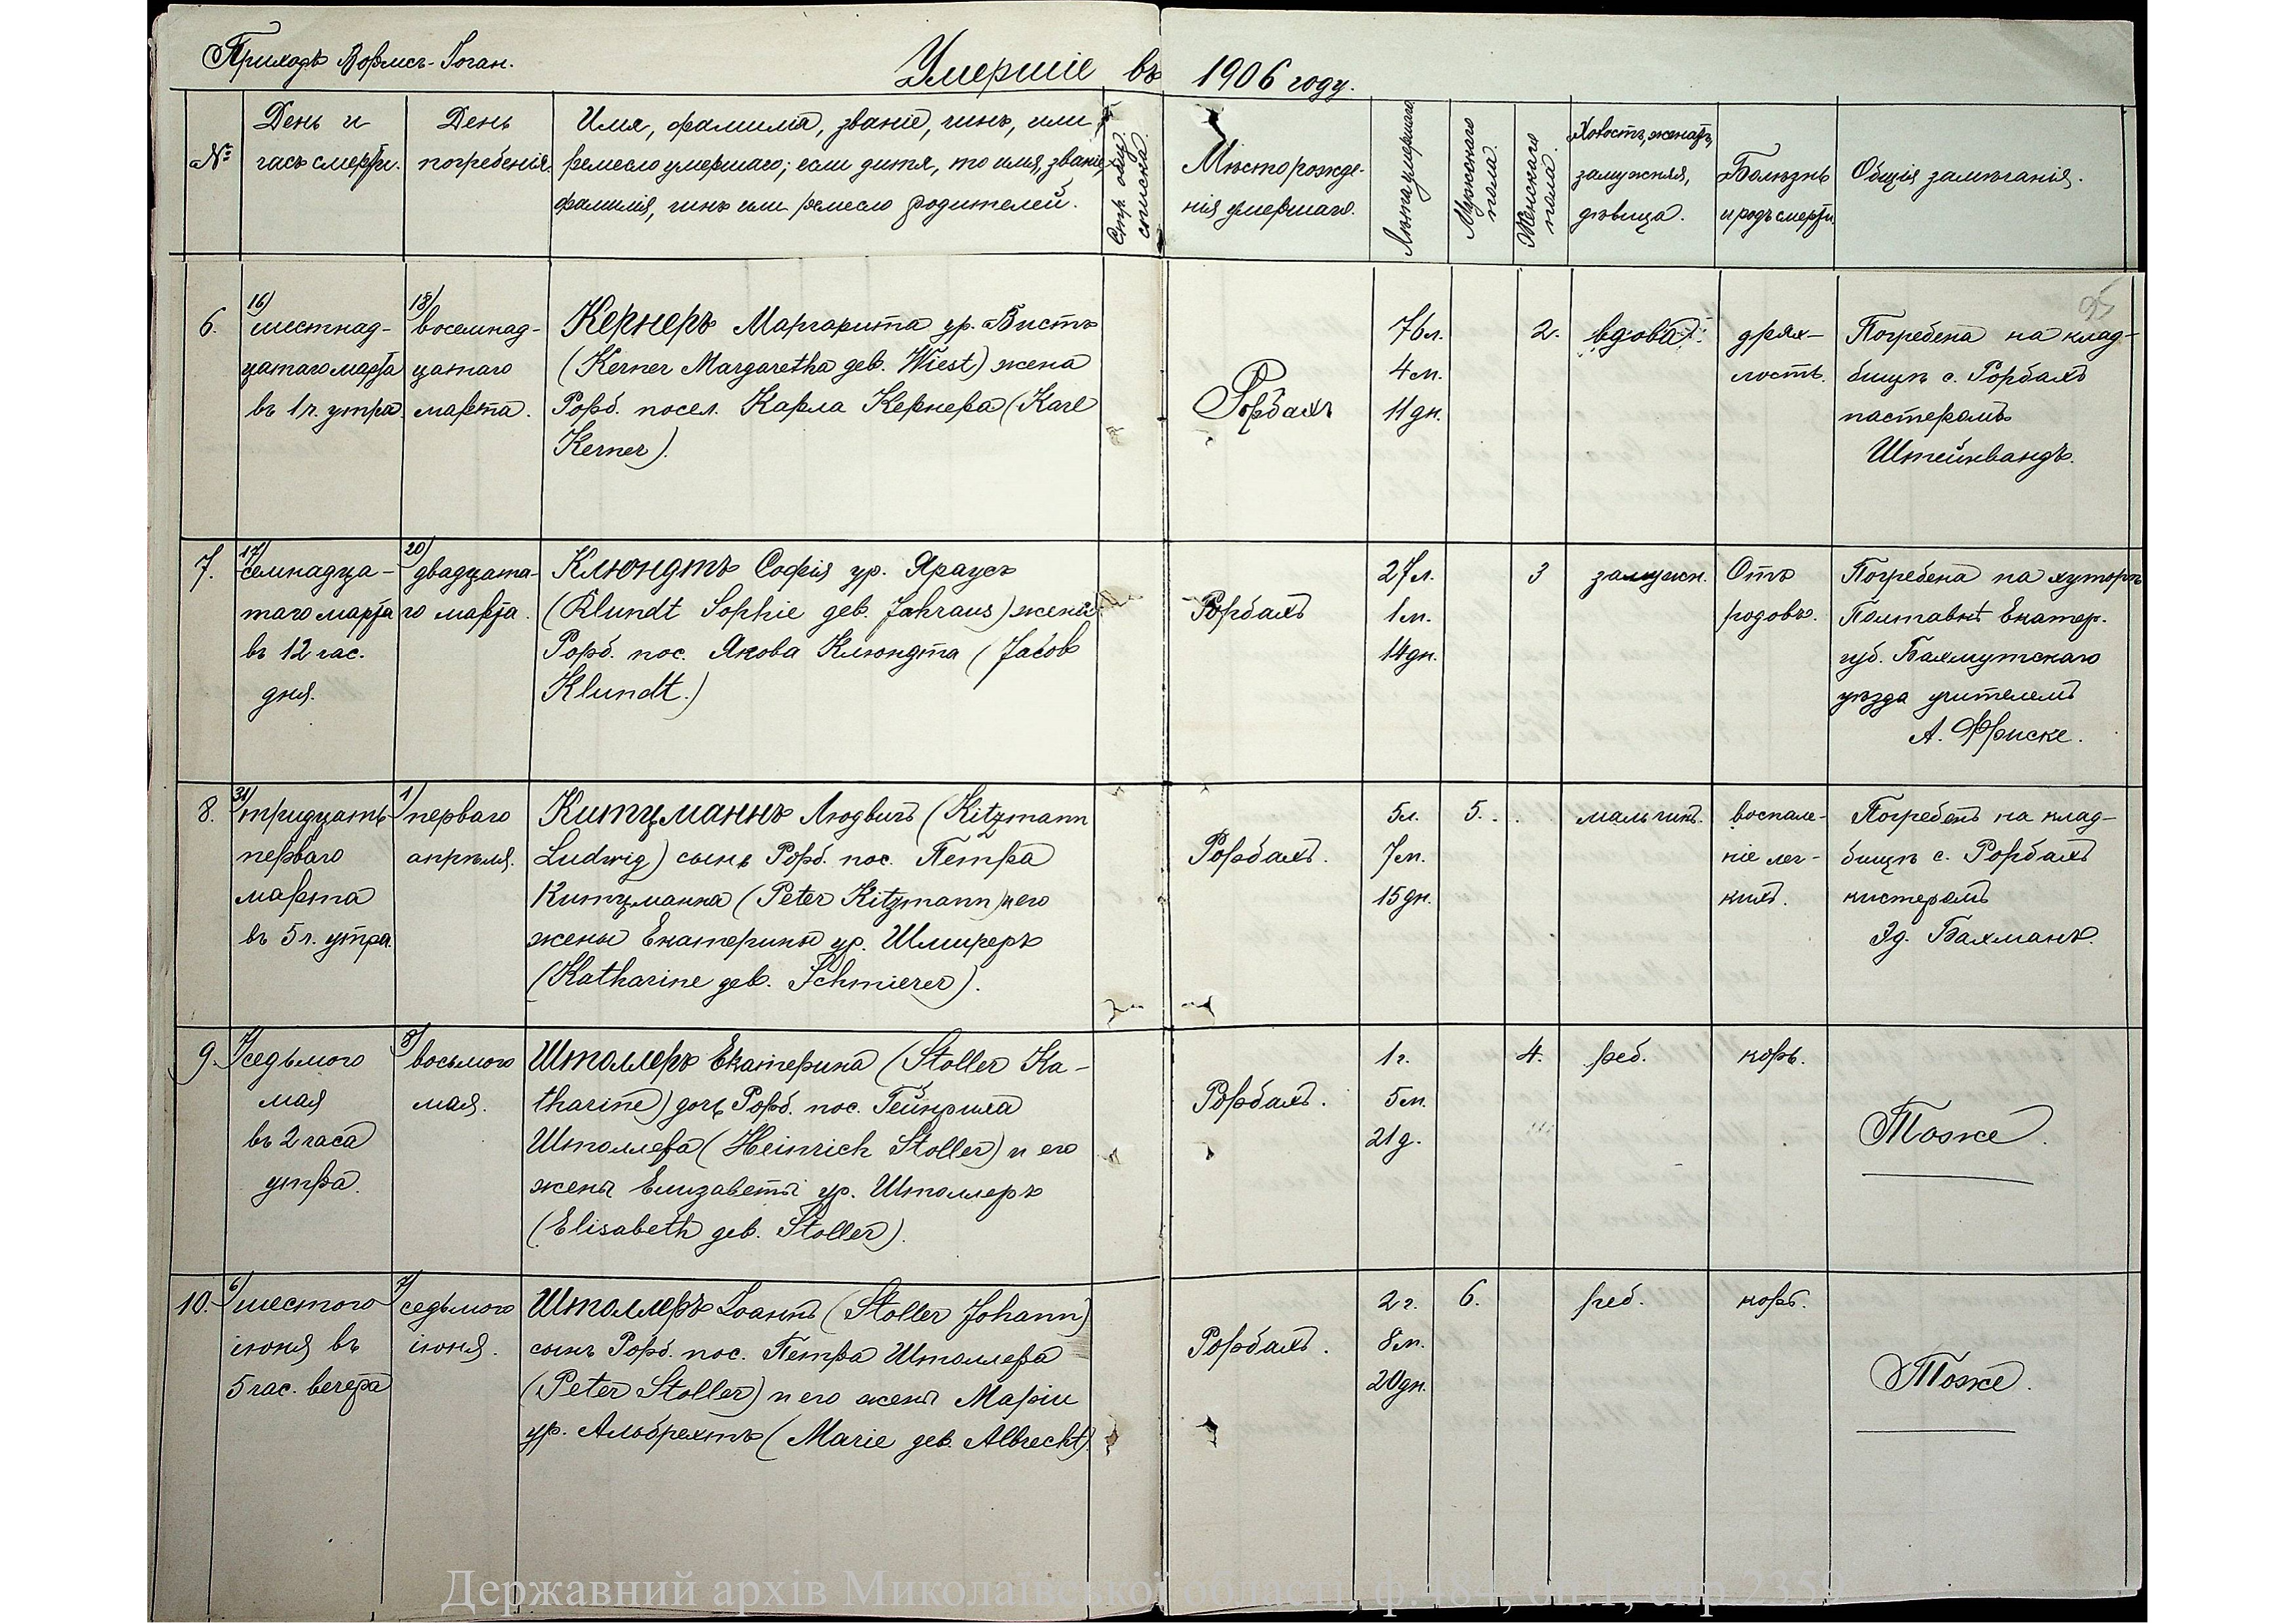 Приходъ Вормсъ-Іоган.
Умершіе въ 1906 году.
№
День и
часъ смерти.
День
погребенія.
Имя, фамилія, званіе, чинъ, или
ремесло умершаго; если дитя, то имя, званіе,
фамилія, чинъ или ремесло родителей.
Стр. общ.
списка.
Мѣсто рожде-
нія умершаго.
Лѣта умершаго
Мужскаго
пола.
Женскаго
пола.
Холостъ, женатъ,
замужняя,
дѣвица.
Болѣзнь
и родъ смерти.
Общія замѣчанія.
95
6.
16)
шестнад-
цатаго марта
въ 1 ч. утра
18)
восемнад-
цатаго
марта.
Кернеръ Маргарита ур. Вистъ
(Kerner Margaretha geb. Wiest) жена
Рорб. посел. Карла Кернера (Karl
Kerner).
Рорбахъ
76 л.
4 м.
11 дн.
2.
вдова.
дрях-
лость.
Погребена на клад-
бищѣ с. Рорбахъ
пастеромъ
Штейнвандъ.
7.
17)
семнадца-
таго марта
въ 12 час.
дня.
20)
двадцата-
го марта.
Клюндтъ Софія ур. Яраусъ
(Klundt Sophie geb. Jahraus) жена
Рорб. пос. Якова Клюндта (Jacob
Klundt.)
Рорбахъ
27 л.
1 м.
14 дн.
3
замужн.
Отъ
родовъ.
Погребена на хуторѣ
Полтавкѣ Екатер.
губ. Бахмутскаго
уѣзда учителемъ
А. Фриске.
8.
31)
тридцать
перваго
марта
въ 5 ч. утра.
1)
перваго
апрѣля.
Китцманнъ Людвигъ (Kitzmann
Ludwig) сынъ Рорб. пос. Петра
Китцманна (Peter Kitzmann) и его
жены Екатерины ур. Шмиреръ
(Katharine geb. Schmierer).
Рорбахъ.
5 л.
7 м.
15 дн.
5.
мальчикъ.
воспале-
ніе лег-
кихъ.
Погребенъ на клад-
бищѣ с. Рорбахъ
кистеромъ
Эд. Бахманъ.
9.
7)
седьмого
мая
въ 2 часа
утра.
8)
восьмого
мая.
Штоллеръ Екатерина (Stoller Ka-
tharine) дочь Рорб. пос. Гейнриха
Штоллера (Heinrich Stoller) и его
жены Елизаветы ур. Штоллеръ
(Elisabeth geb. Stoller).
Рорбахъ.
1 г.
5 м.
21 д.
4.
реб.
корь.
Тоже.
10.
6)
шестого
іюня въ
5 час. вечера
7)
седьмого
іюня.
Штоллеръ Іоаннъ (Stoller Johann)
сынъ Рорб. пос. Петра Штоллера
(Peter Stoller) и его жены Маріи
ур. Альбрехтъ (Marie geb. Albrecht).
Рорбахъ.
2 г.
8 м.
20 дн.
6.
реб.
корь.
Тоже.
Державний архів Миколаївської області, ф.484, оп.1, спр.2359